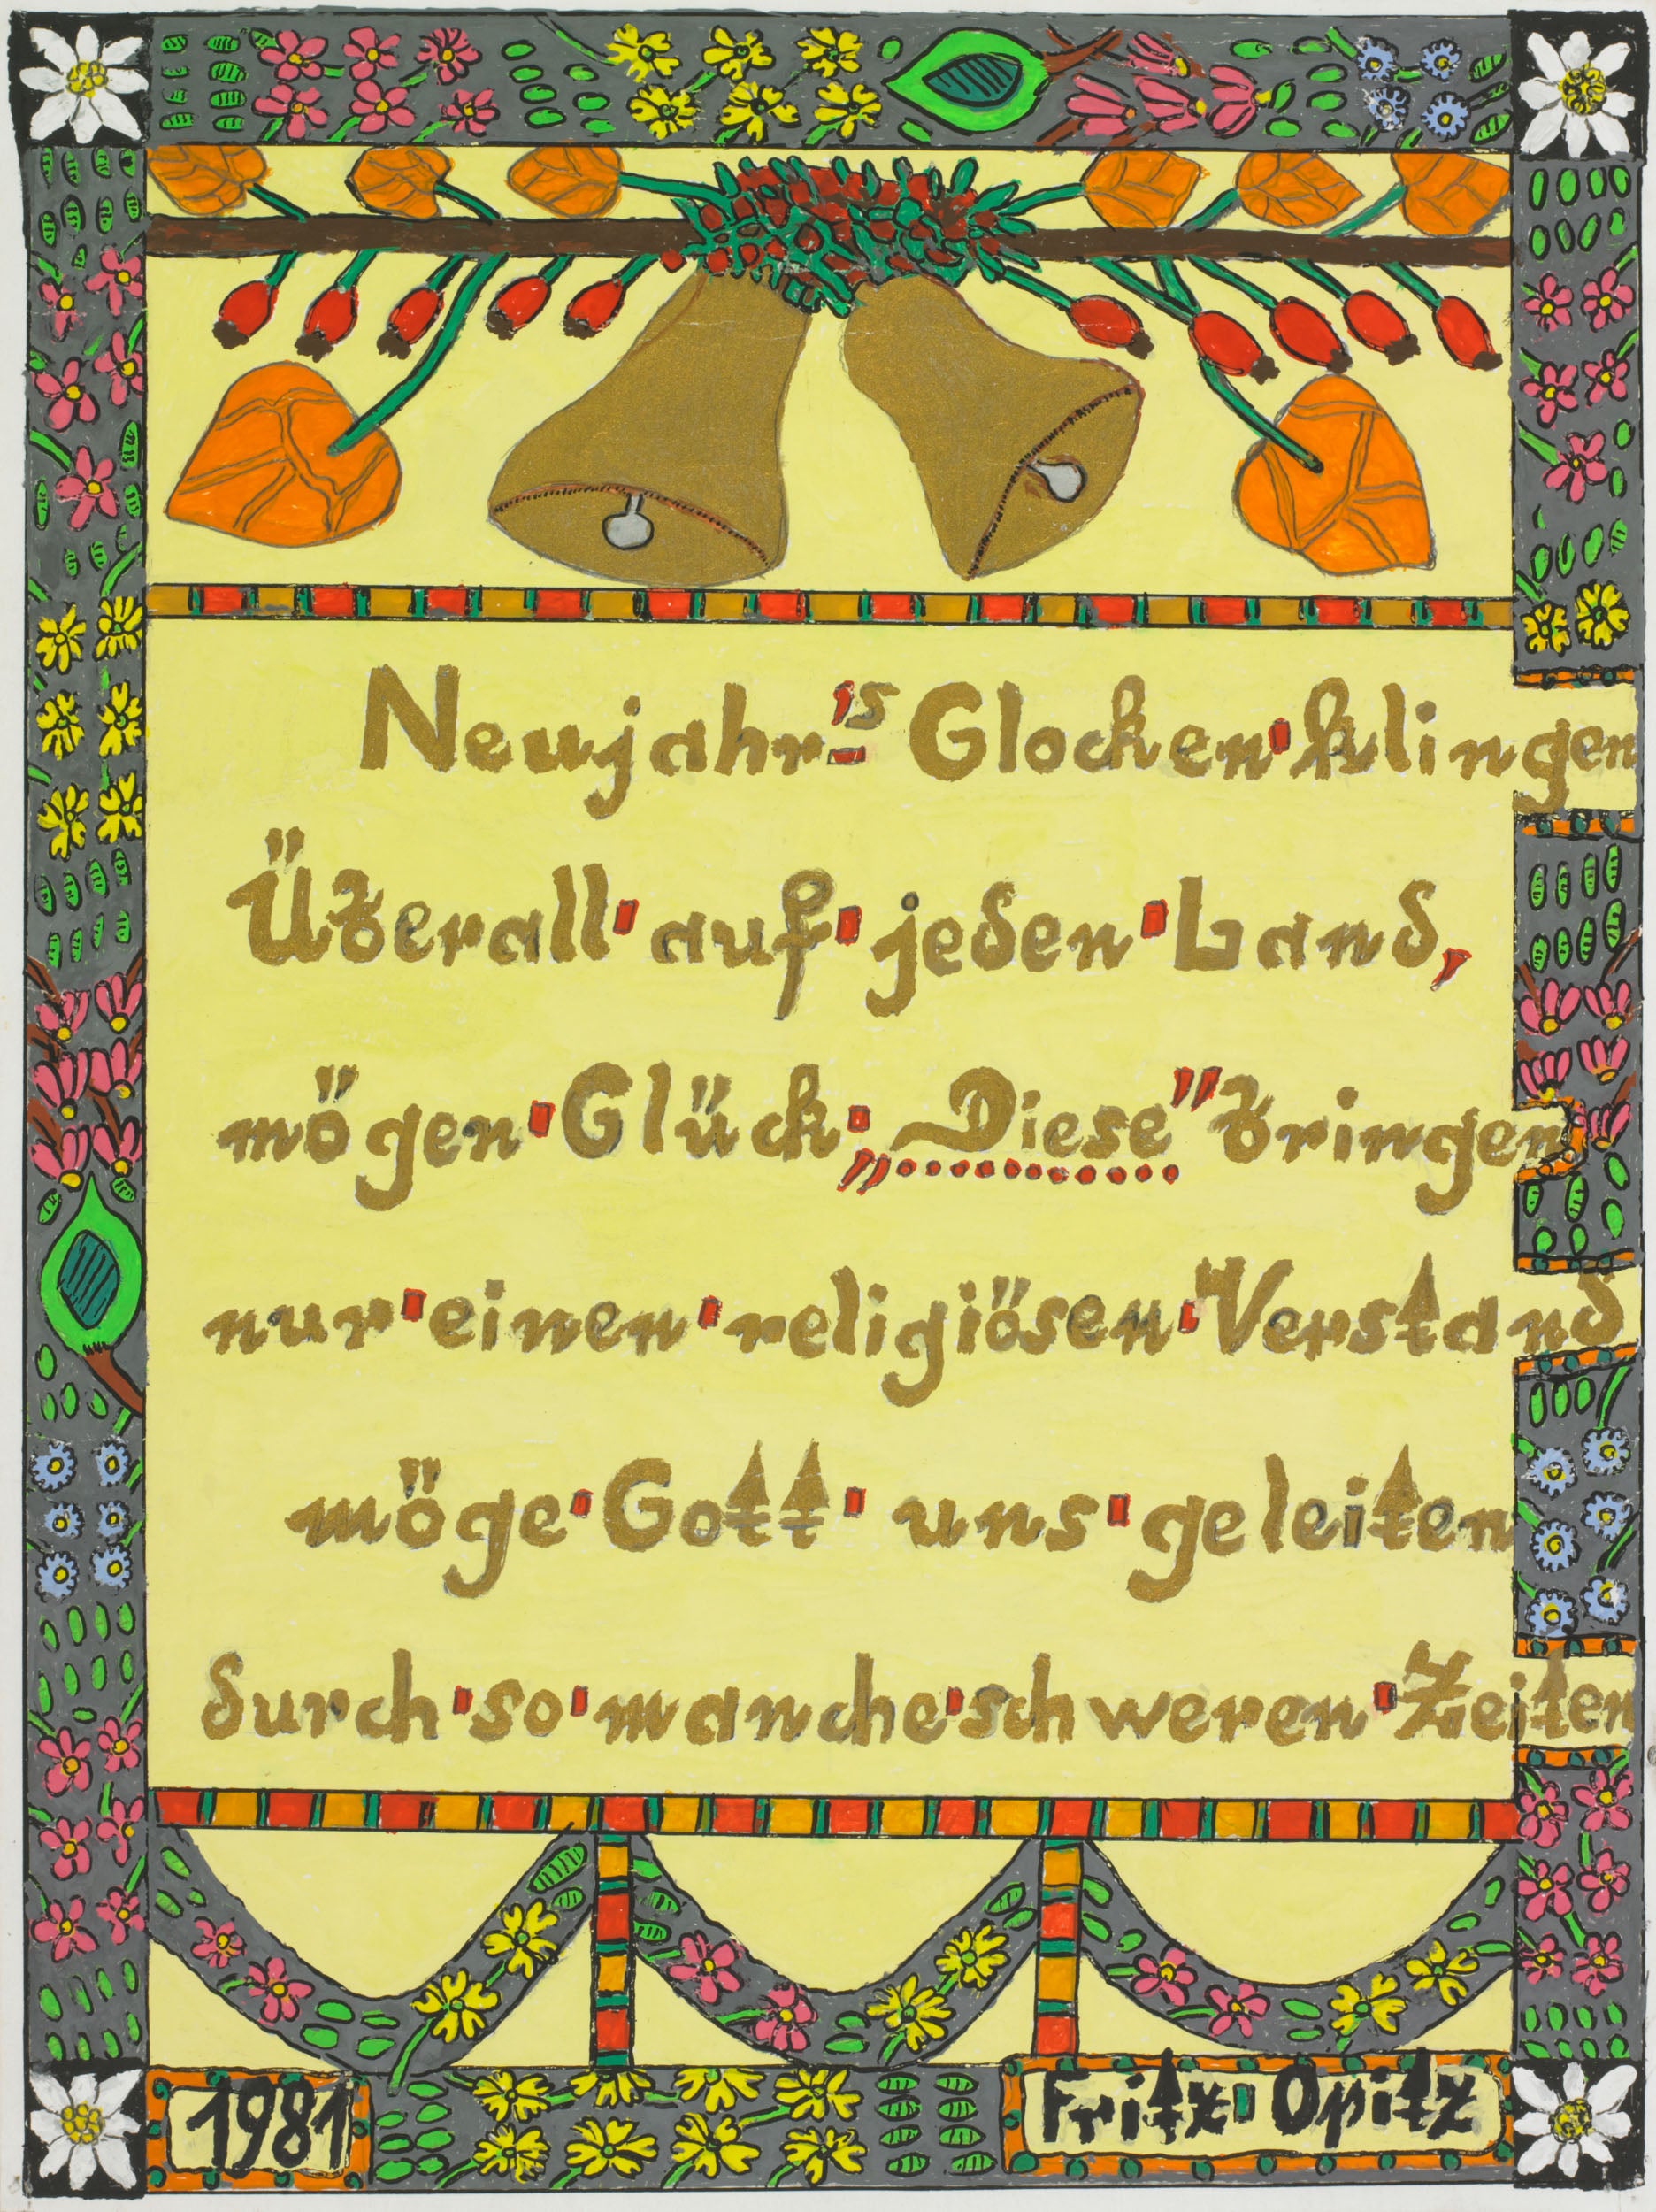 Neujahr's Glocken klingen
Überall auf jeden Land,
mögen Glück „Diese” bringen
nur einen religiösen Verstand
möge Gott uns geleiten
durch so manche schweren Zeiten
1981
Fritz Opitz